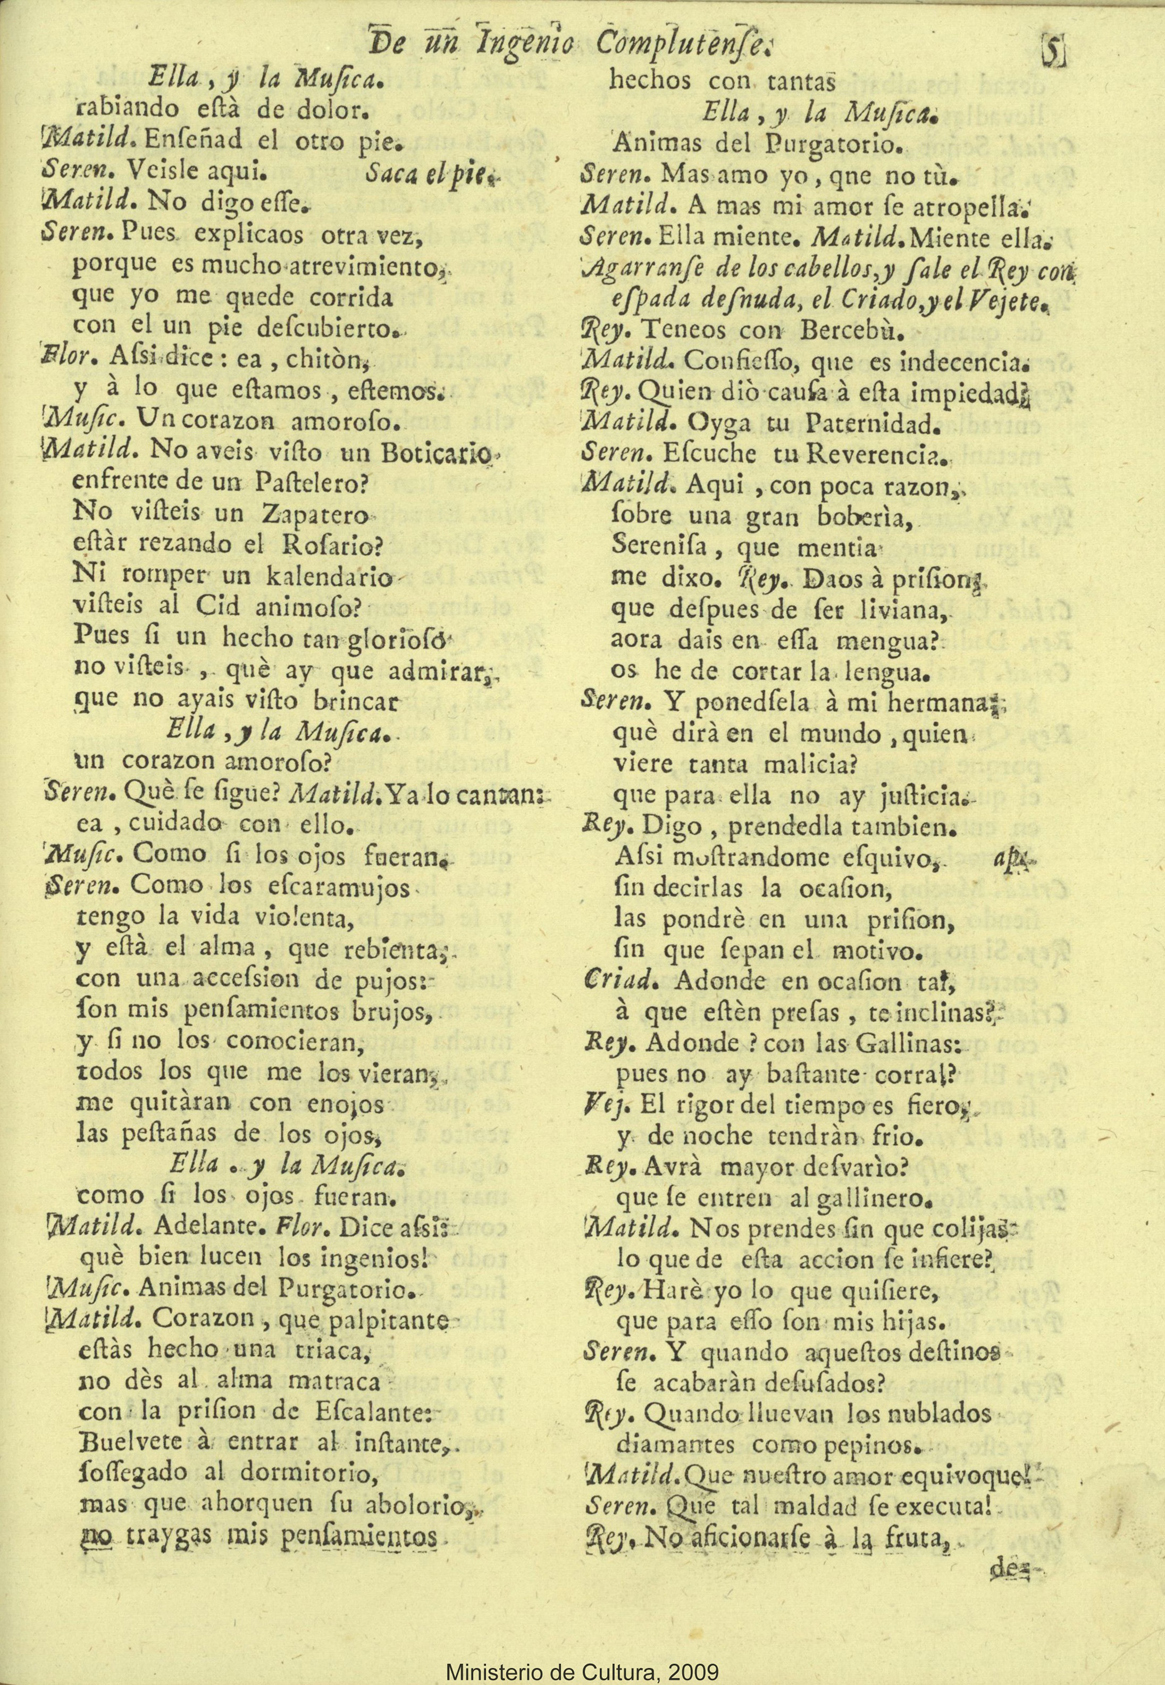 De un Ingenio Complutense. [5]
Ella, y la Musica.
rabiando està de dolor.
Matild. Enseñad el otro pie.
Seren. Veisle aqui. Saca el pie.
Matild. No digo esse.
Seren. Pues explicaos otra vez,
porque es mucho atrevimiento,
que yo me quede corrida
con el un pie descubierto.
Flor. Assi dice: ea, chitòn,
y à lo que estamos, estemos.
Music. Un corazon amoroso.
Matild. No aveis visto un Boticario
enfrente de un Pastelero?
No visteis un Zapatero
estàr rezando el Rosario?
Ni romper un kalendario
visteis al Cid animoso?
Pues si un hecho tan glorioso
no visteis, què ay que admirar,
que no ayais visto brincar
Ella, y la Musica.
un corazon amoroso?
Seren. Què se sigue? Matild. Ya lo cantan:
ea, cuidado con ello.
Music. Como si los ojos fueran.
Seren. Como los escaramujos
tengo la vida violenta,
y està el alma, que rebienta,
con una accession de pujos:
son mis pensamientos brujos,
y si no los conocieran,
todos los que me los vieran,
me quitàran con enojos
las pestañas de los ojos,
Ella. y la Musica.
como si los ojos fueran.
Matild. Adelante. Flor. Dice assi:
què bien lucen los ingenios!
Music. Animas del Purgatorio.
Matild. Corazon, que palpitante
estàs hecho una triaca,
no dès al alma matraca
con la prision de Escalante:
Buelvete à entrar al instante,
sossegado al dormitorio,
mas que ahorquen su abolorio,
no traygas mis pensamientos
hechos con tantas
Ella, y la Musica.
Animas del Purgatorio.
Seren. Mas amo yo, qne no tù.
Matild. A mas mi amor se atropella.
Seren. Ella miente. Matild. Miente ella.
Agarranse de los cabellos, y sale el Rey con
espada desnuda, el Criado, y el Vejete.
Rey. Teneos con Bercebù.
Matild. Confiesso, que es indecencia.
Rey. Quien diò causa à esta impiedad?
Matild. Oyga tu Paternidad.
Seren. Escuche tu Reverencia.
Matild. Aqui, con poca razon,
sobre una gran boberìa,
Serenisa, que mentia
me dixo. Rey. Daos à prision;
que despues de ser liviana,
aora dais en essa mengua?
os he de cortar la lengua.
Seren. Y ponedsela à mi hermana;
què dirà en el mundo, quien
viere tanta malicia?
que para ella no ay justicia.
Rey. Digo, prendedla tambien.
Assi mostrandome esquivo, ap.
sin decirlas la ocasion,
las pondrè en una prision,
sin que sepan el motivo.
Criad. Adonde en ocasion tal,
à que estèn presas, te inclinas?
Rey. Adonde? con las Gallinas:
pues no ay bastante corral?
Vej. El rigor del tiempo es fiero,
y de noche tendràn frio.
Rey. Avrà mayor desvarìo?
que se entren al gallinero.
Matild. Nos prendes sin que colijas
lo que de esta accion se infiere?
Rey. Harè yo lo que quisiere,
que para esso son mis hijas.
Seren. Y quando aquestos destinos
se acabaràn desusados?
Rey. Quando lluevan los nublados
diamantes como pepinos.
Matild. Que nuestro amor equivoque!
Seren. Que tal maldad se executa!
Rey. No aficionarse à la fruta,
des-
Ministerio de Cultura, 2009